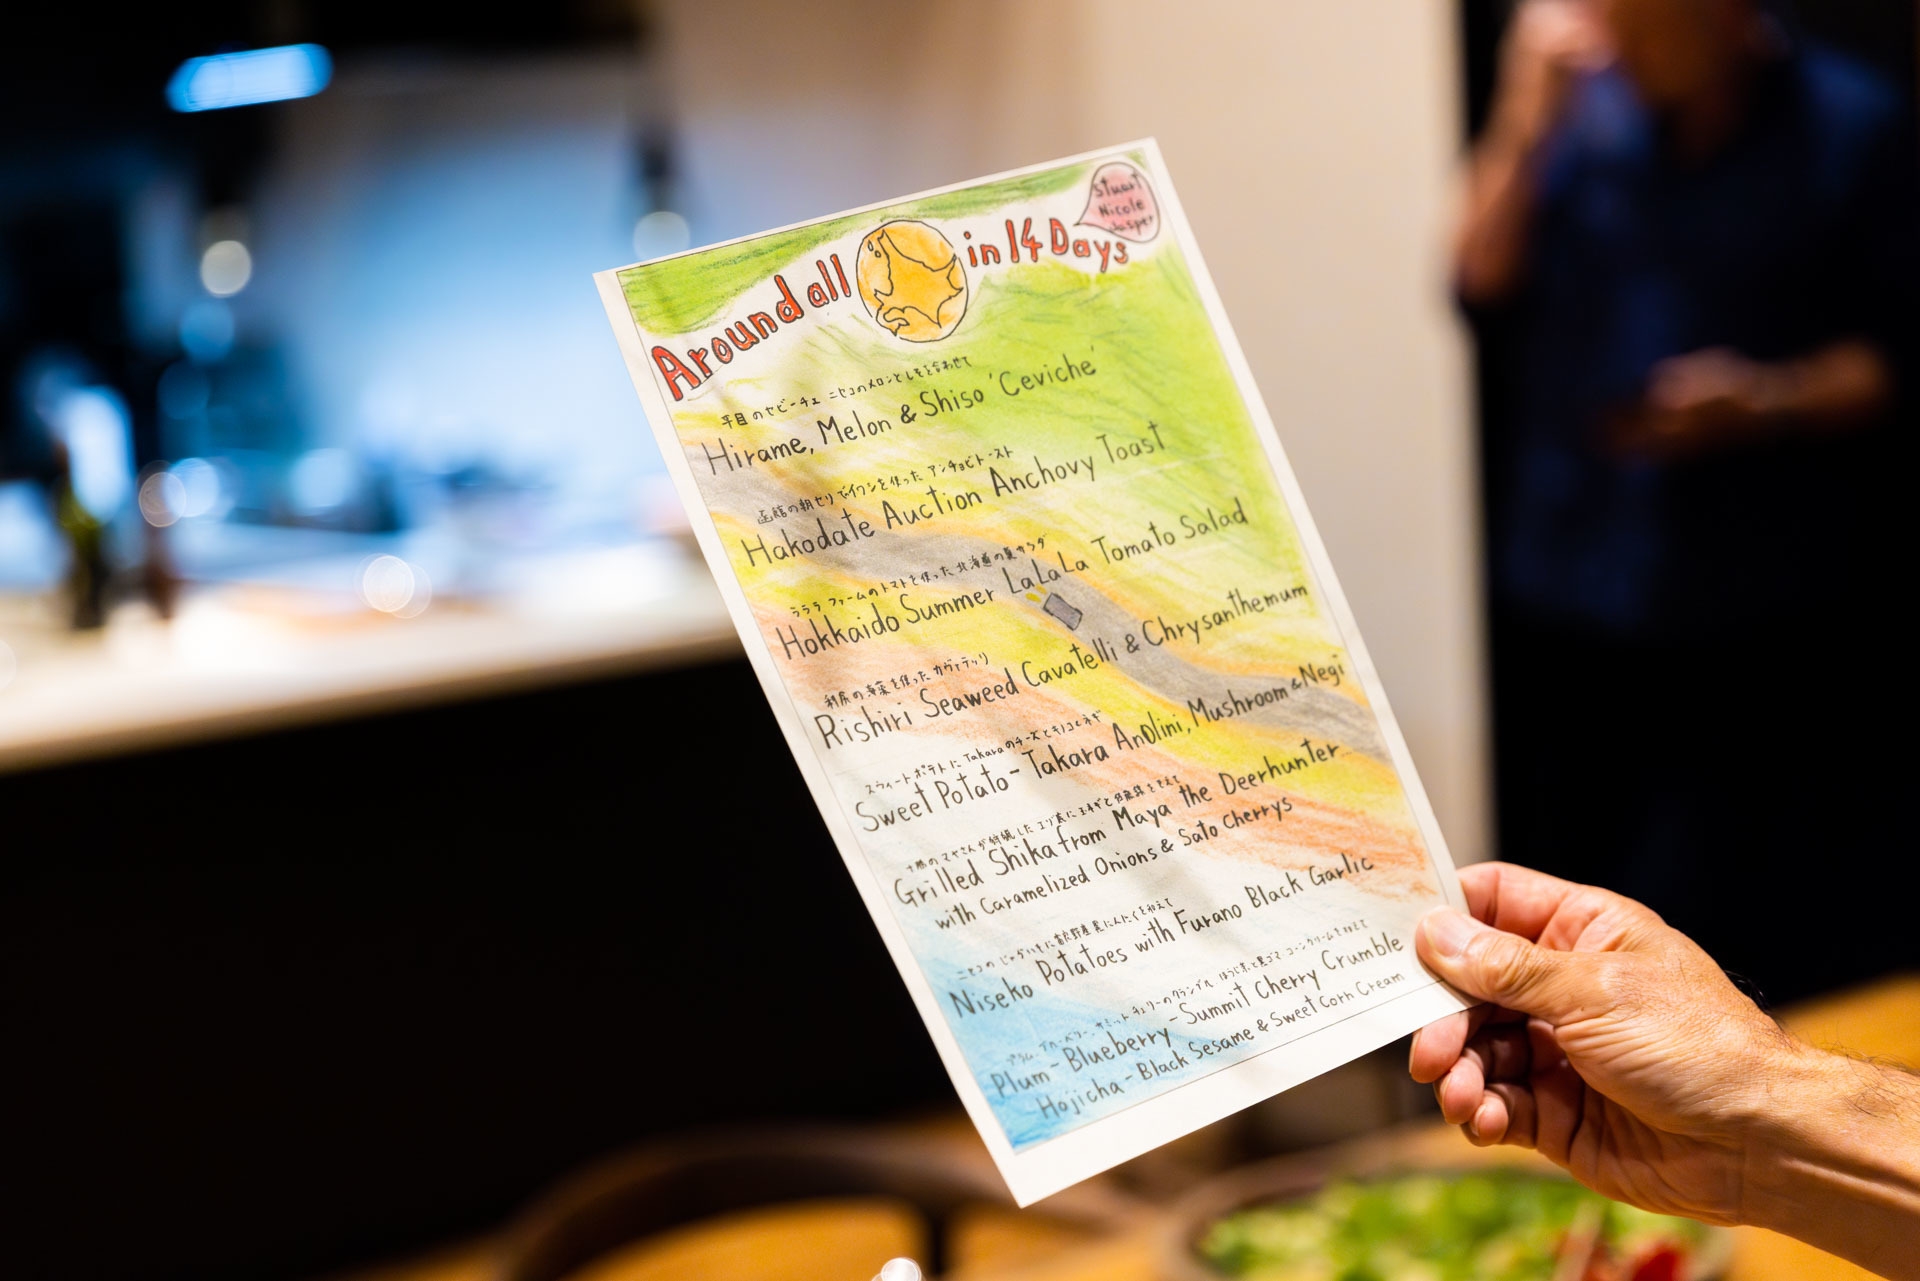 Stuart
Nicole
Jasper
Around all in 14 Days
平目のセビーチェ ニセコのメロンとしそを合わせて
Hirame, Melon & Shiso 'Ceviche'
函館の朝セリでイワシを使った アンチョビトースト
Hakodate Auction Anchovy Toast
ラララファームのトマトを使った 北海道の夏サラダ
Hokkaido Summer LaLaLa Tomato Salad
利尻の海藻を使った カヴァテッリ
Rishiri Seaweed Cavatelli & Chrysanthemum
スウィートポテトに Takaraのチーズとキノコとネギ
Sweet Potato - Takara Anolini, Mushroom & Negi
十勝のマヤさんが狩猟したエゾ鹿に玉ネギと佐藤錦をそえて
Grilled Shika from Maya the Deerhunter
with Caramelized Onions & Sato Cherrys
ニセコの じゃがいもに富良野産黒にんにくを和えて
Niseko Potatoes with Furano Black Garlic
プラム、ブルーベリー、サミットチェリーのクランブル ほうじ茶と黒ゴマ、コーンクリームを添えて
Plum - Blueberry - Summit Cherry Crumble
Hojicha - Black Sesame & Sweet Corn Cream